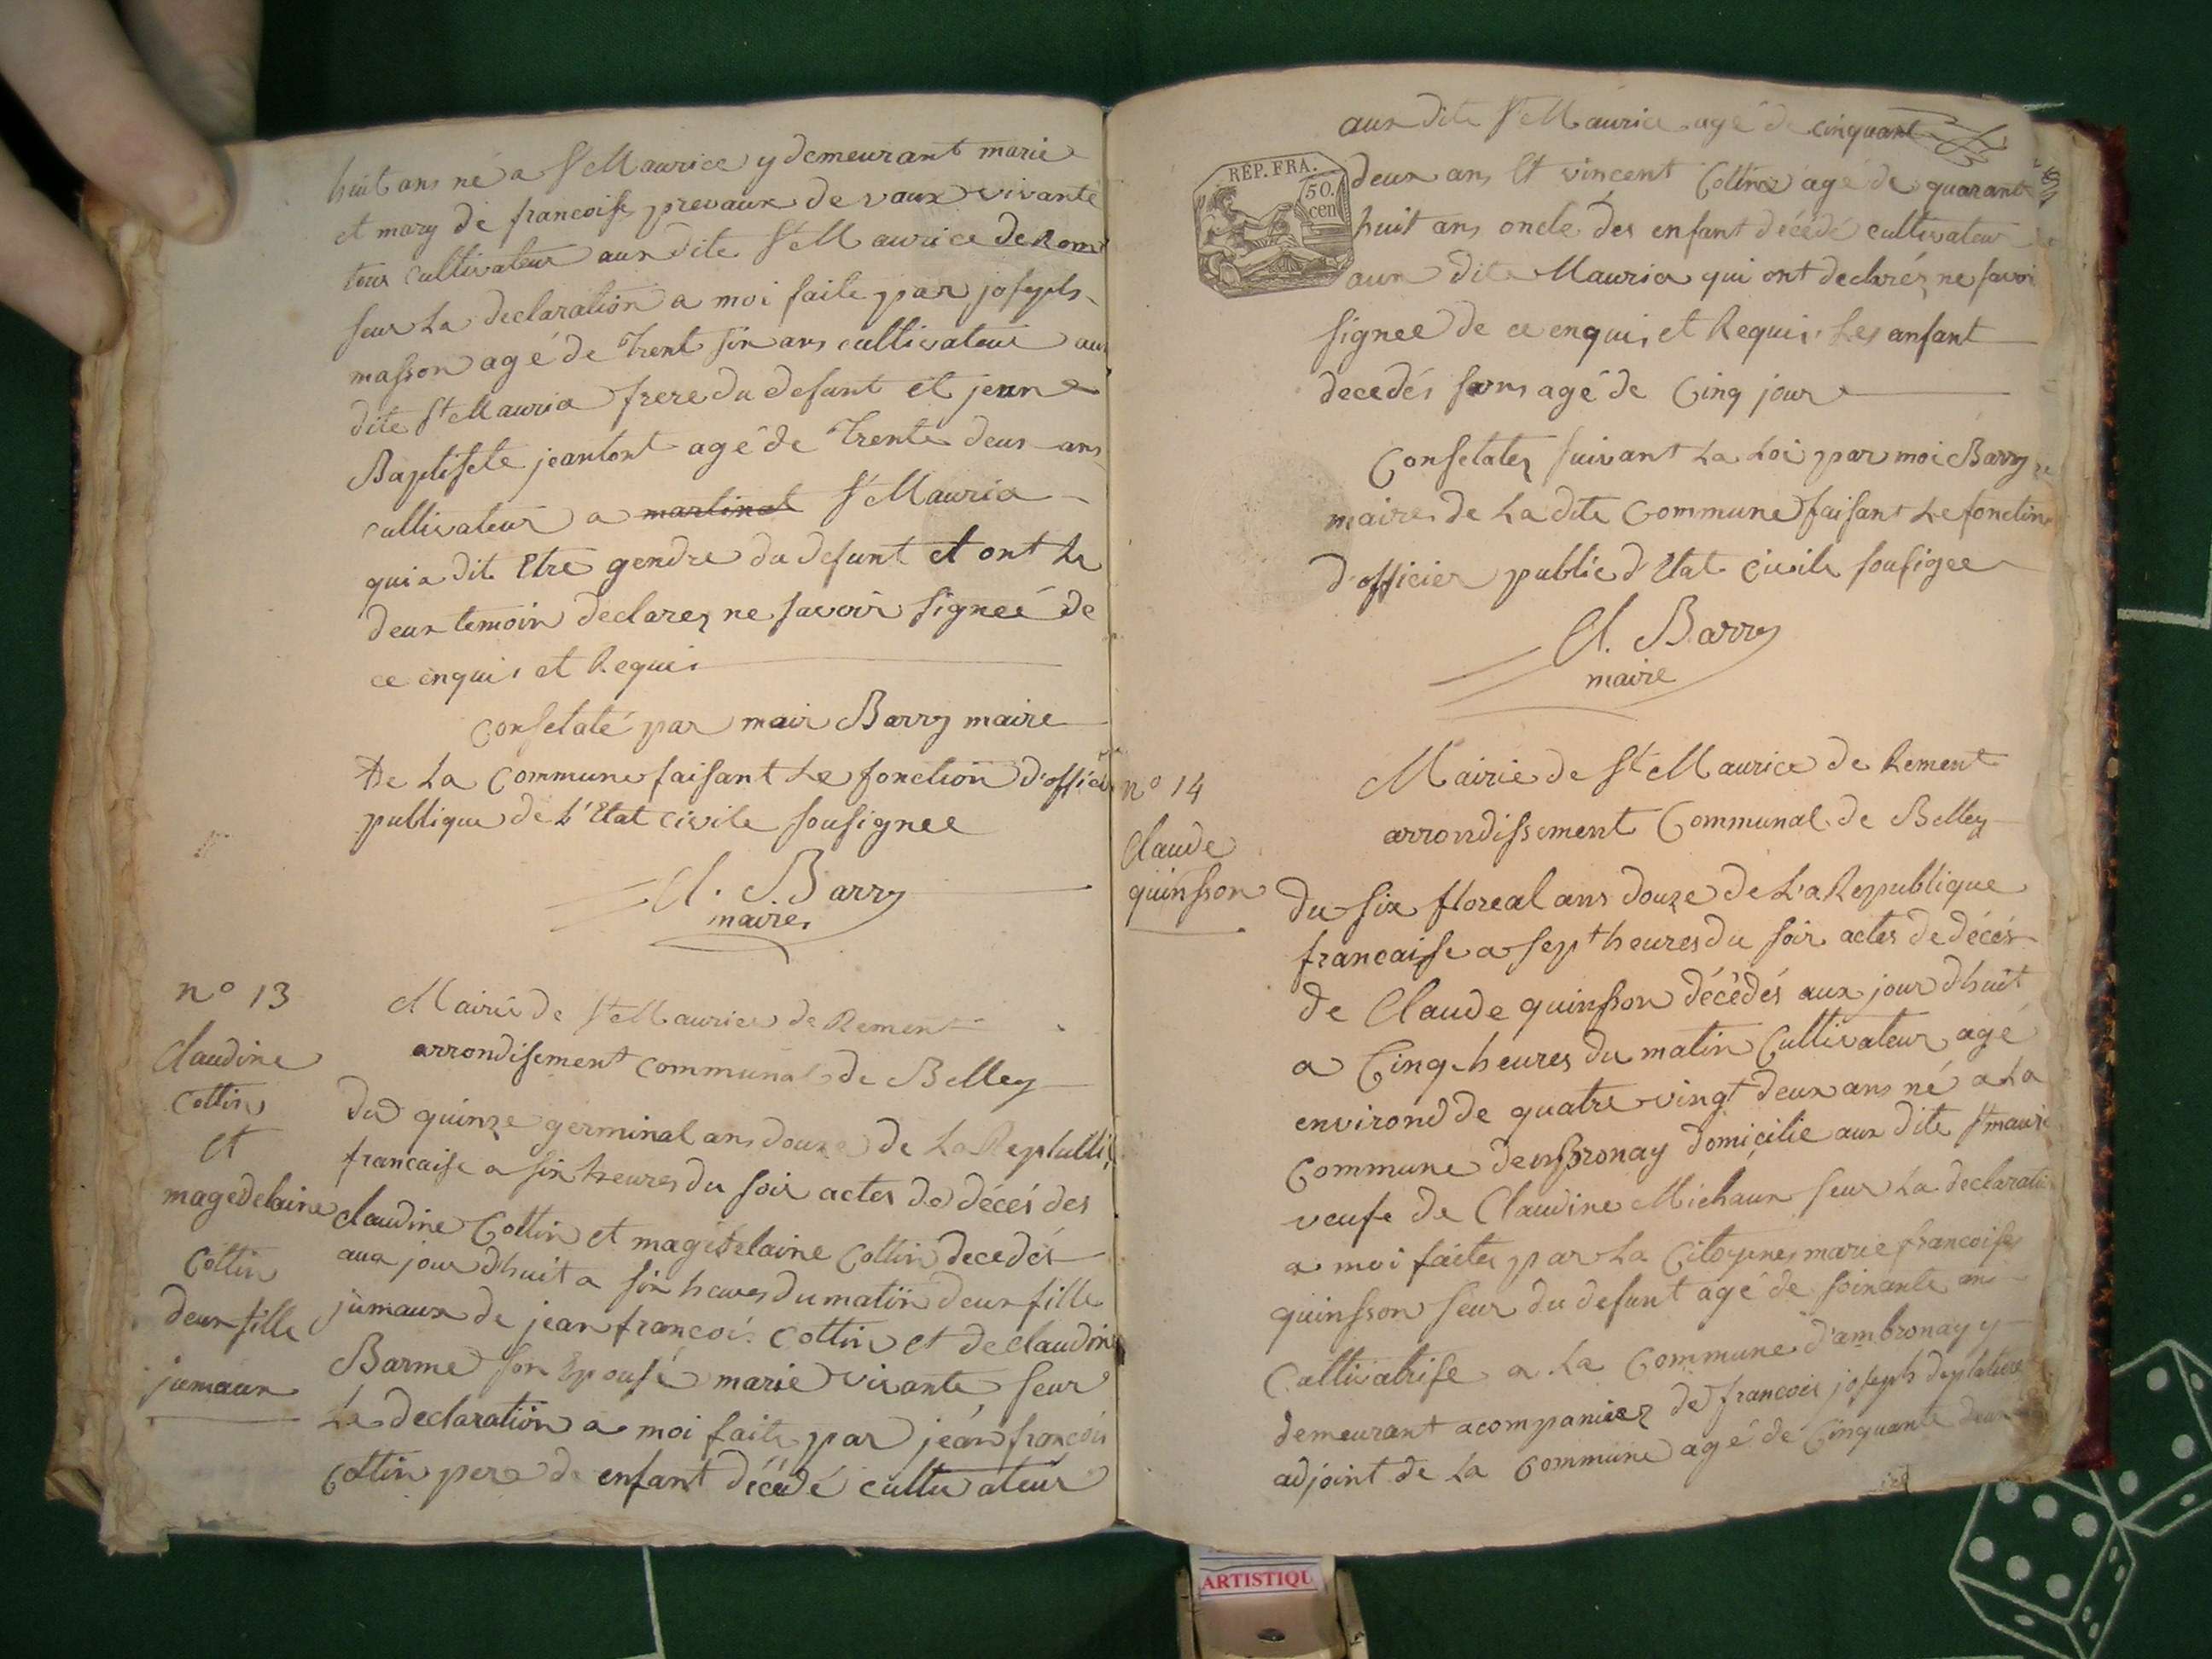 huit ans né a St Maurice y demeurant marie
et mary de francoise prevaux de vaux vivante
tous cultivateur aux dite St Maurice de Rem
seur La declaration a moi faite par joseph
masson agé de trent six ans cultivateur aux
dite St Maurice frere du defunt et jean
Baptisete jeantont agé de trente deux ans
cultivateur a martinat St Maurice
qui a dit Etre gendre du defunt et ont Le
deux temoin declarez ne savoir signeé de
ce enquis et Requis
Consetaté par mair Barry maire
De La Commune faisant Le fonction d'officier
publique de L'Etat civile sousignee
Cl. Barry
maire
n° 13
claudine
Cottin
et
magedelaine
Cottin
deux fille
jumaux
Mairie de St Maurice de Rement
arrondisement communal de Belley
Du quinze germinal ans douze de La Republi
francaise a six heures du soir actes de décés des
claudine Cottin et magedelaine Cottin decedés
aux jour dhuit a six heures du matin deux fille
jumaux de jean francois Cottin et de claudine
Barme son Epousé marie vivante, seur
La declaration a moi faite par jean francois
Cottin pere de enfant décédé cultivateur
aux dite St Maurice agé de cinquant
REP. FRA.
50.
cen
deux ans Et vincent Cottin agé de quarante
huit ans oncle des enfant décédé cultivateur
aux dite Maurice qui ont declarés ne savoi
signee de ce enquis et Requis Les anfant
decedés sans agé de Cinq jour
Consetatez suivant La Loi par moi Barry
maire de La dite Commune faisant Le fonction
d'officier public d'Etat civile sousigee
Cl. Barry
maire
n° 14
Claude
quinsson
Mairie de St Maurice de Rement
arrondissement Communal de Belley
Du six floreal ans douze de La Republique
francaise a sept heures du soir actes de décés
de Claude quinsson décédés aux jour dhuit
a Cinq heures du matin Cultivateur agé
environd de quatre vingt deux ans né a La
Commune denspronay domicilie aux dite St mauri
veufe de Claudine Michaux seur La declaration
a moi faites par La Citoyenes marie francoise
quinsson seur du defunt agé de soixante ans
Cultivatrise a La Commune d'ambronay y
demeurant acompaniez de francois joseph deplature
adjoint de La Commune agé de Cinquante deux
ARTISTIQU